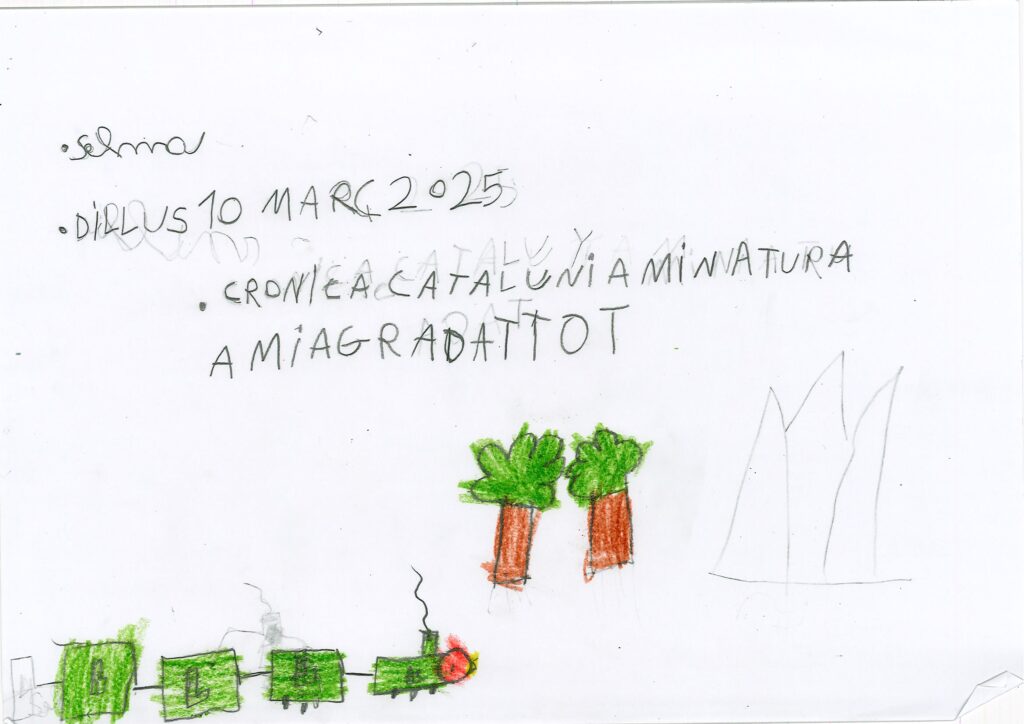 • Selma
• DILLUS 10 MARÇ 2025
• CRONICA CATALUNIA MINIATURA
A MIAGRADAT TOT